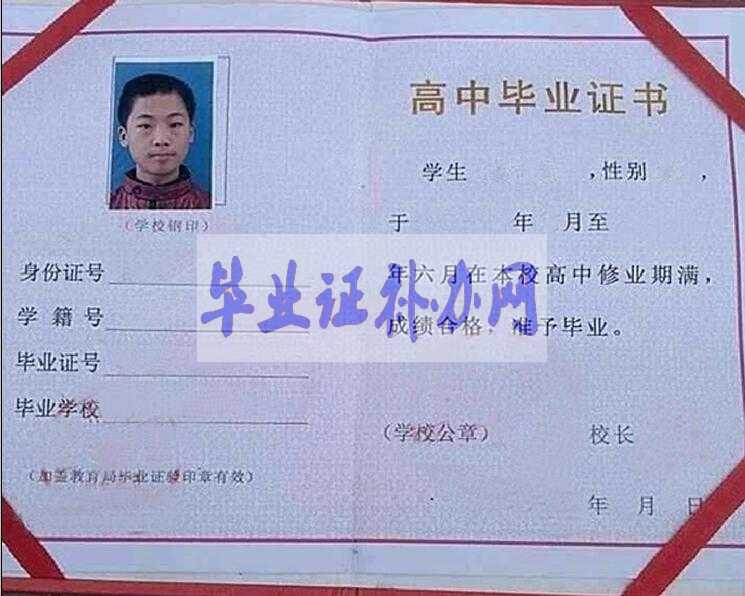 （学校钢印）
身份证号
学籍号
毕业证号
毕业学校
（加盖教育局毕业证验印章有效）
高中毕业证书
学生 ，性别 ，
于 年 月至
年六月在本校高中修业期满，
成绩合格，准予毕业。
（学校公章） 校长
年 月 日
毕业证补办网